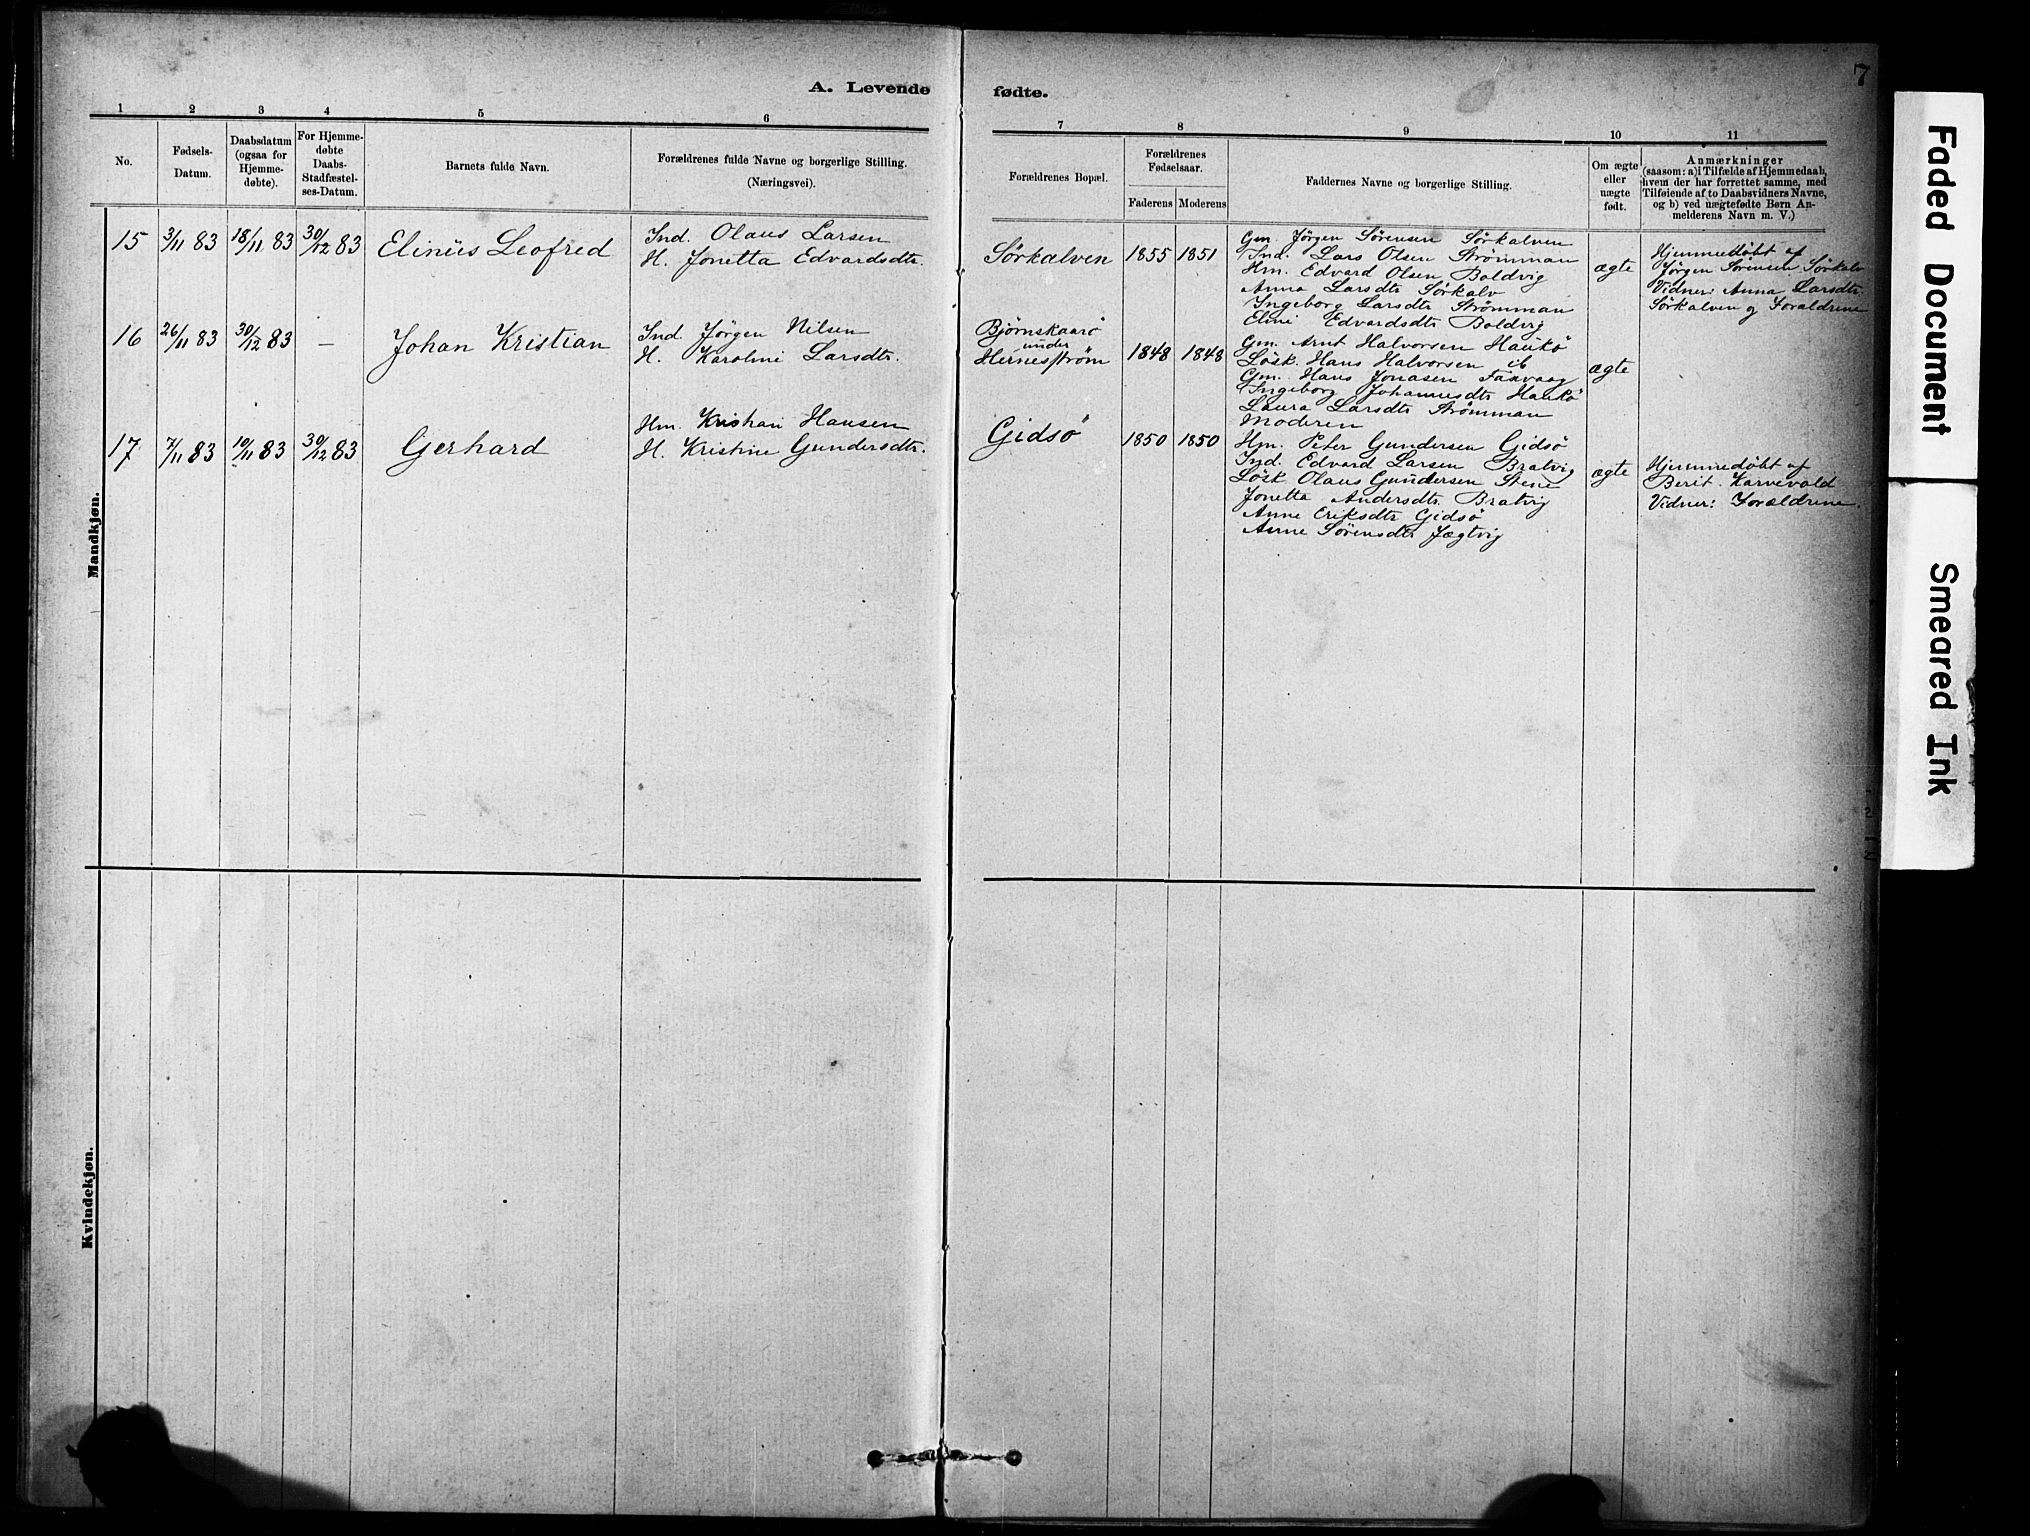 7
A. Levende fødte.
1 2 3 4 5 6 7 8 9 10 11
No.
Fødsels-
Datum.
Daabsdatum
(ogsaa for
Hjemme-
døbte).
For Hjemme-
døbte
Daabs-
Stadfæstel-
ses-Datum.
Barnets fulde Navn.
Forældrenes fulde Navne og borgerlige Stilling.
(Næringsvei).
Forældrenes Bopæl.
Forældrenes
Fødselsaar.
Faderens Moderens
Faddernes Navne og borgerlige Stilling.
Om ægte
eller
uægte
født.
Anmærkninger
(saasom: a) i Tilfælde af Hjemmedaab,
hvem der har forrettet samme, med
Tilføiende af to Daabsvidners Navne,
og b) ved uægtefødte Børn An-
melderens Navn m. V.)
Mandkjøn.
15 3/11 83 18/11 83 30/12 83 Elinüs Leofred
Ind. Olaus Larsen
H. Jonetta Edvardsdtr.
Sörkalven 1855 1851
Gm. Jörgen Sörensen Sörkalven
Ind. Lars Olsen Strömman
Hm. Edvard Olsen Boldvig
Anna Larsdtr Sörkalv
Ingeborg Larsdtr Strömman
Eline Edvardsdtr Boldvig
ægte
Hjemmedöbt af
Jörgen Sörensen Sörkalv
Vidner: Anna Larsdtr.
Sörkalven og Forældrene
16 26/11 83 30/12 83 — Johan Kristian
Ind. Jörgen Nilsen
H. Karoline Larsdtr.
Björnskaarö
under
Hernesström 1848 1848
Gm. Arnt Halvorsen Haukö
Lösk. Hans Halvorsen ib
Gm. Hans Jonasen Faxvaag
Ingeborg Johannesdtr Haukö
Laura Larsdtr Strömman
Moderen
ægte
17 7/11 83 10/11 83 30/12 83 Gerhard
Hm. Kristian Hansen
H. Kristine Gundersdtr.
Gidsö 1850 1850
Hm. Peter Gundersen Gidsö
Ind. Edvard Larsen Bratvig
Lösk Olaus Gundersen Stene
Jonetta Andersdtr. Bratvig
Anne Eriksdtr Gidsö
Anne Sörensdtr Jægtvig
ægte
Hjemmedöbt af
Berit Karvevold
Vidner: Forældrene.
Kvindekjøn.
Faded Document
Smeared Ink